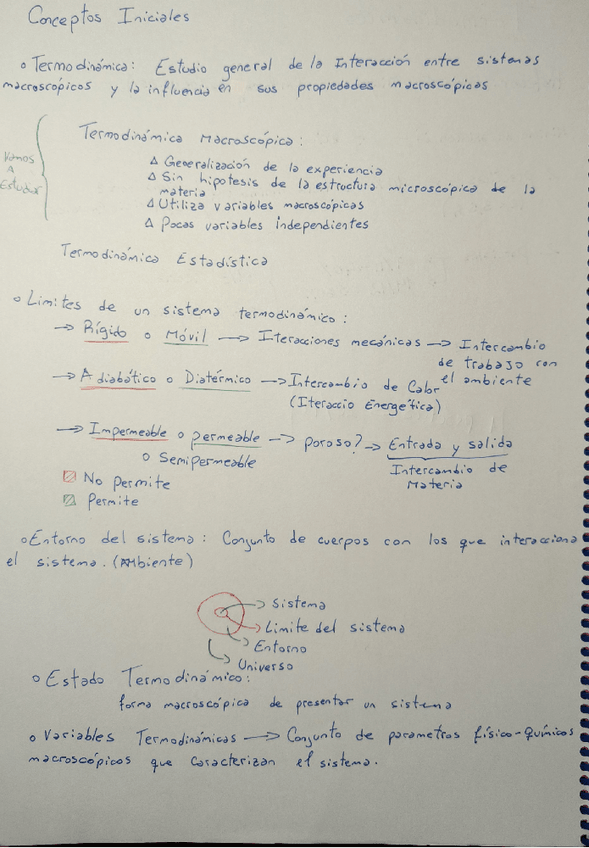 Conceptos Iniciales
o Termodinámica: Estudio general de la Interacción entre sistemas
macroscópicos y la influencia en sus propiedades macroscópicas
Vamos
A
Estudiar
Termodinámica Macroscópica:
Δ Generalización de la experiencia
Δ Sin hipotesis de la estructura microscópica de la
materia
Δ Utiliza variables macroscópicas
Δ Pocas variables independientes
Termodinámica Estadística
o Limites de un sistema termodinámico:
→ Rígido o Móvil → Iteracciones mecánicas → Intercambio
de trabajo con
el ambiente
→ Adiabático o Diatérmico → Intercambio de Calor
(Iteraccio Energética)
→ Impermeable o permeable → poroso? → Entrada y salida
o Semipermeable
Intercambio de
Materia
No Permite
Permite
o Entorno del sistema: Conjunto de cuerpos con los que interacciona
el sistema. (Ambiente)
→ Sistema
→ Limite del sistema
→ Entorno
→ Universo
o Estado Termodinámico:
forma macroscópica de presentar un sistema
o Variables Termodinámicas → Conjunto de parametros físico-químicos
macroscópicos que caracterizan el sistema.